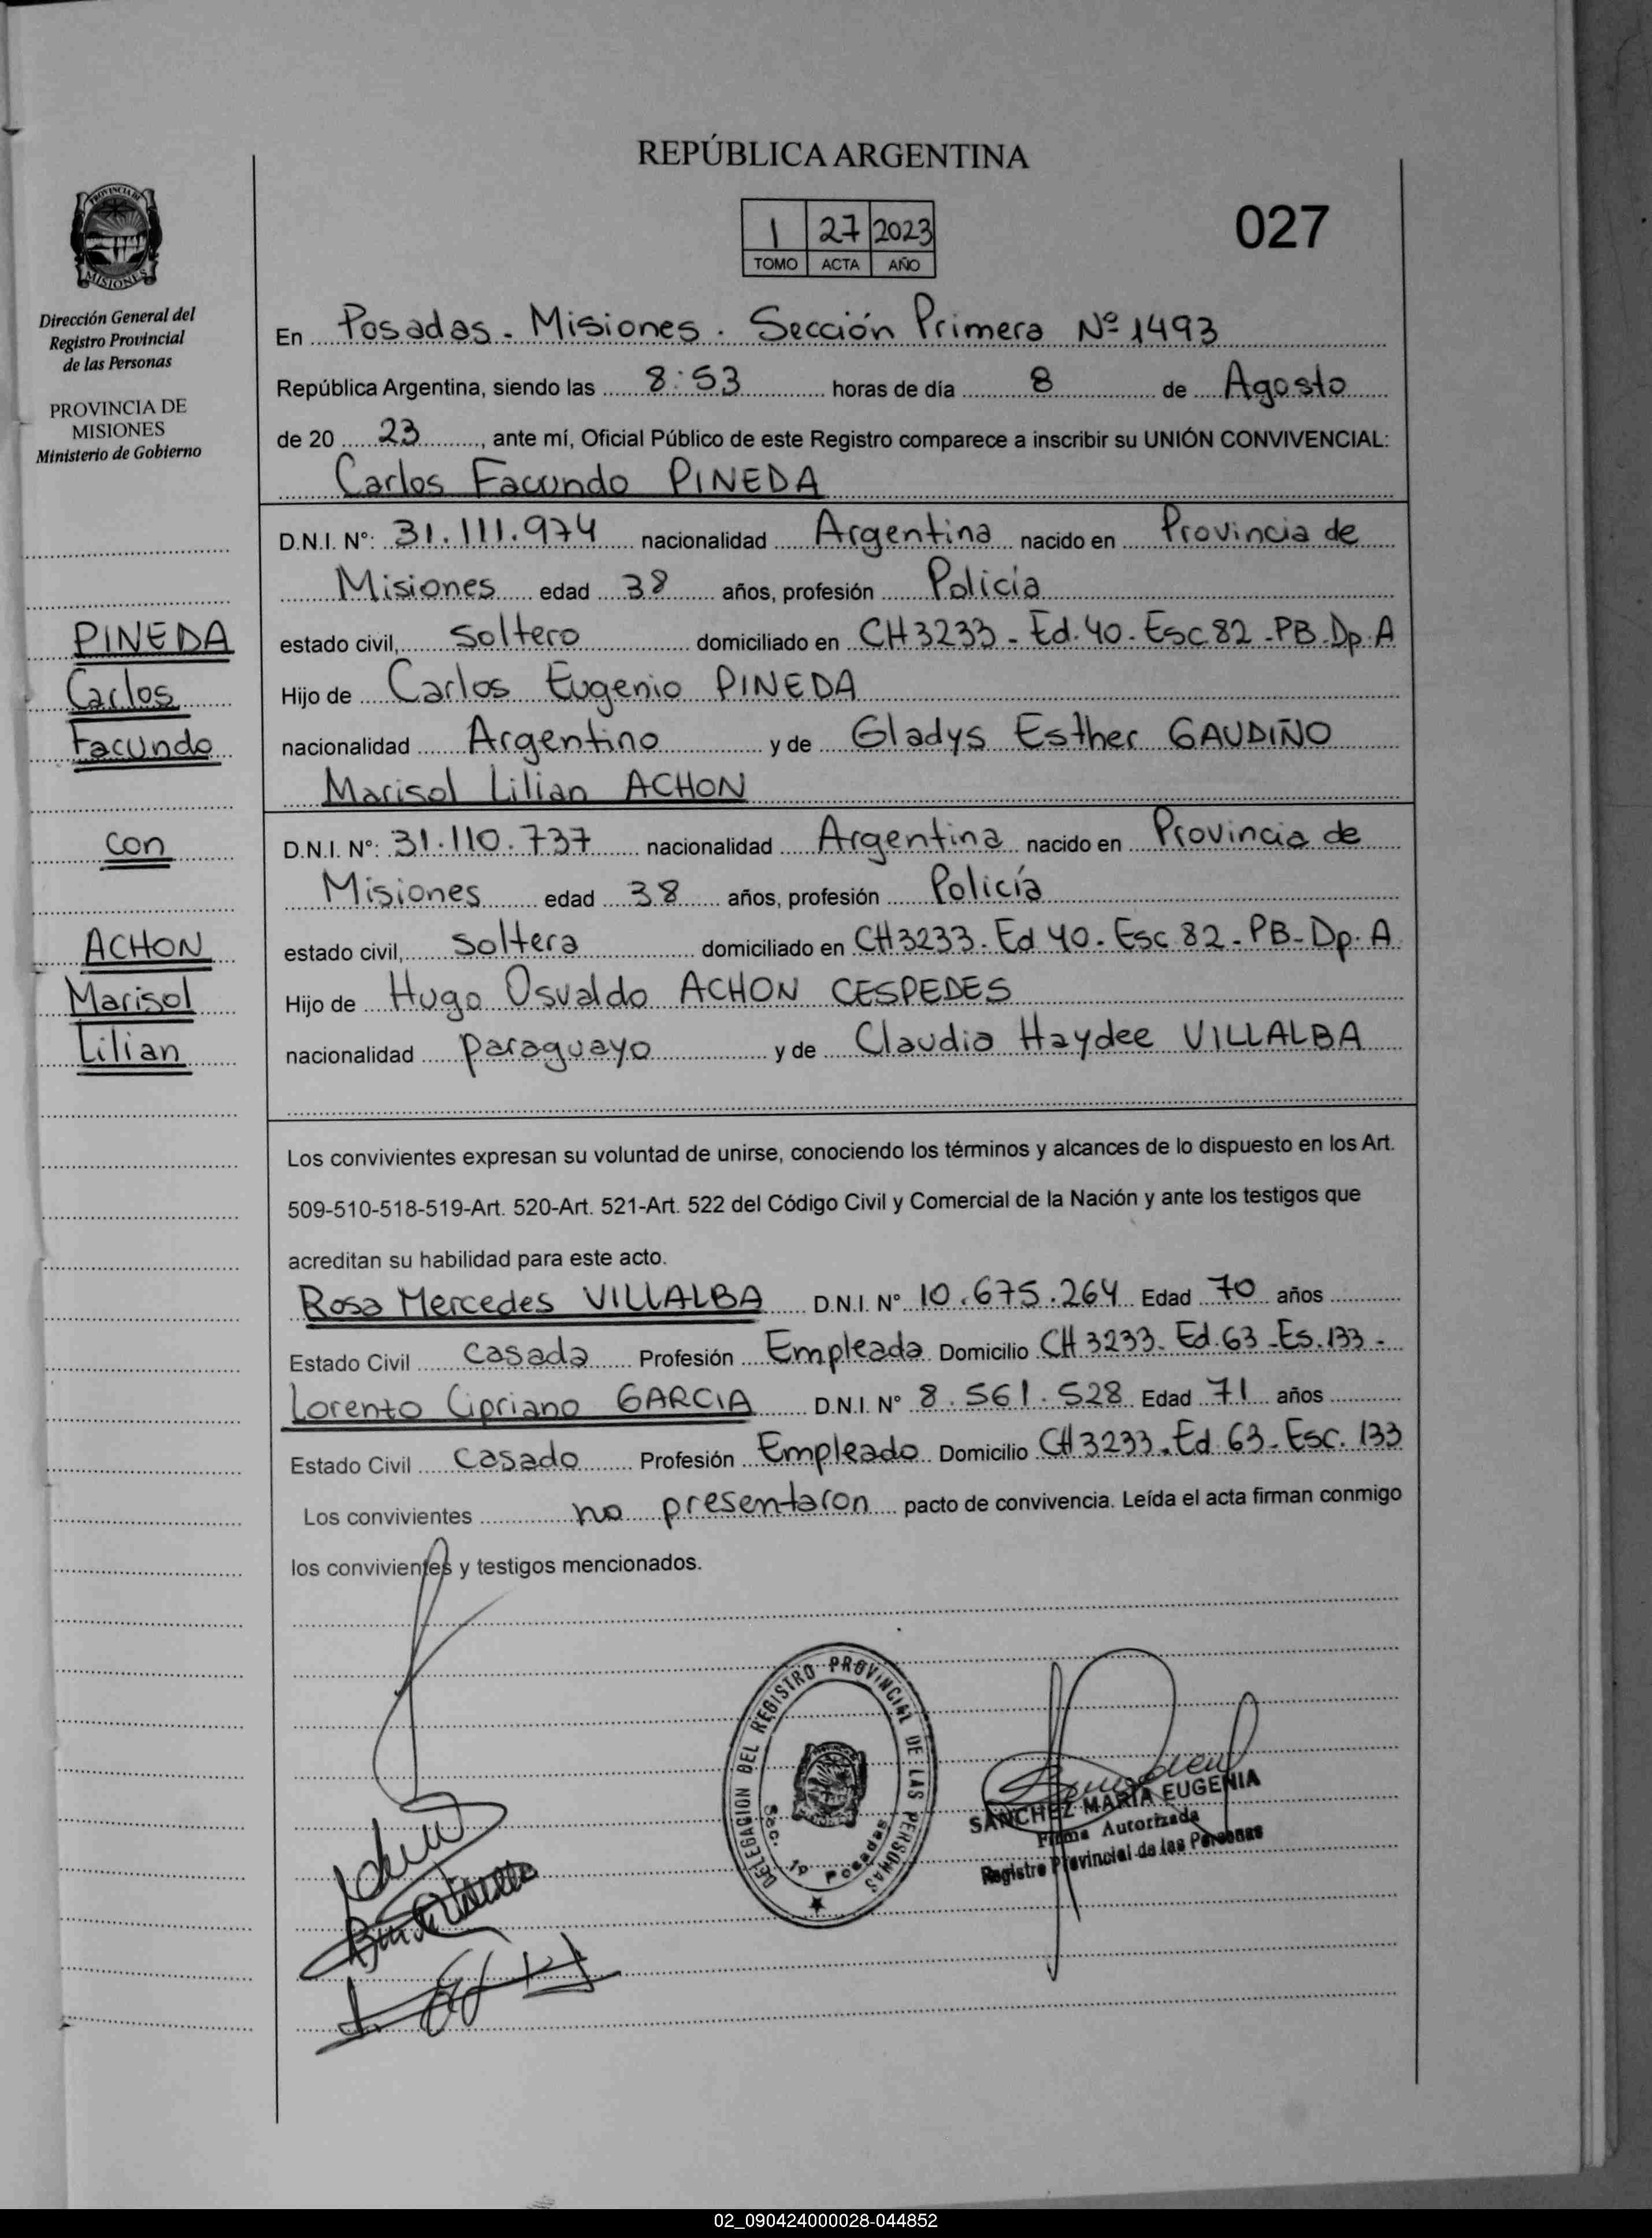 REPÚBLICA ARGENTINA
1 27 2023
TOMO ACTA AÑO
027
PROVINCIA DE
MISIONES
Dirección General del
Registro Provincial
de las Personas
PROVINCIA DE
MISIONES
Ministerio de Gobierno
PINEDA
Carlos
Facundo
con
ACHON
Marisol
Lilian
En Posadas - Misiones . Sección Primera Nº 1493
República Argentina, siendo las 8:53 horas de día 8 de Agosto
de 20 23, ante mí, Oficial Público de este Registro comparece a inscribir su UNIÓN CONVIVENCIAL:
Carlos Facundo PINEDA
D.N.I. N°: 31.111.974 nacionalidad Argentina nacido en Provincia de
Misiones edad 38 años, profesión Policía
estado civil, soltero domiciliado en CH 3233 - Ed. 40 - Esc 82 - PB - Dp. A
Hijo de Carlos Eugenio PINEDA
nacionalidad Argentino y de Gladys Esther GAUDIÑO
Marisol Lilian ACHON
D.N.I. N°: 31.110.737 nacionalidad Argentina nacido en Provincia de
Misiones edad 38 años, profesión Policía
estado civil, soltera domiciliado en CH 3233 - Ed 40 - Esc 82 - PB - Dp. A
Hijo de Hugo Osvaldo ACHON CESPEDES
nacionalidad paraguayo y de Claudia Haydee VILLALBA
Los convivientes expresan su voluntad de unirse, conociendo los términos y alcances de lo dispuesto en los Art.
509-510-518-519-Art. 520-Art. 521-Art. 522 del Código Civil y Comercial de la Nación y ante los testigos que
acreditan su habilidad para este acto.
Rosa Mercedes VILLALBA D.N.I. N° 10.675.264 Edad 70 años
Estado Civil casada Profesión Empleada Domicilio CH 3233 - Ed. 63 - Es. 133 -
Lorento Cipriano GARCIA D.N.I. N° 8.561.528 Edad 71 años
Estado Civil casado Profesión Empleado Domicilio CH 3233 - Ed. 63 - Esc. 133
Los convivientes no presentaron pacto de convivencia. Leída el acta firman conmigo
los convivientes y testigos mencionados.
DELEGACION DEL REGISTRO PROVINCIAL DE LAS PERSONAS
Sec. 1º Posadas
SANCHEZ MARIA EUGENIA
Firma Autorizada
Registro Provincial de las Personas
02_090424000028-044852